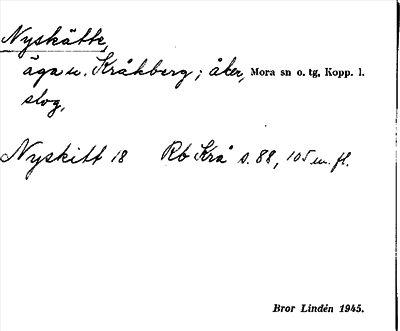 Nyskätte,
äga u. Kråkberg; åker, Mora sn o. tg, Kopp. l.
slog,
Nyskitt 18 Rb Krå s. 88, 105 m. fl.
Bror Lindén 1945.